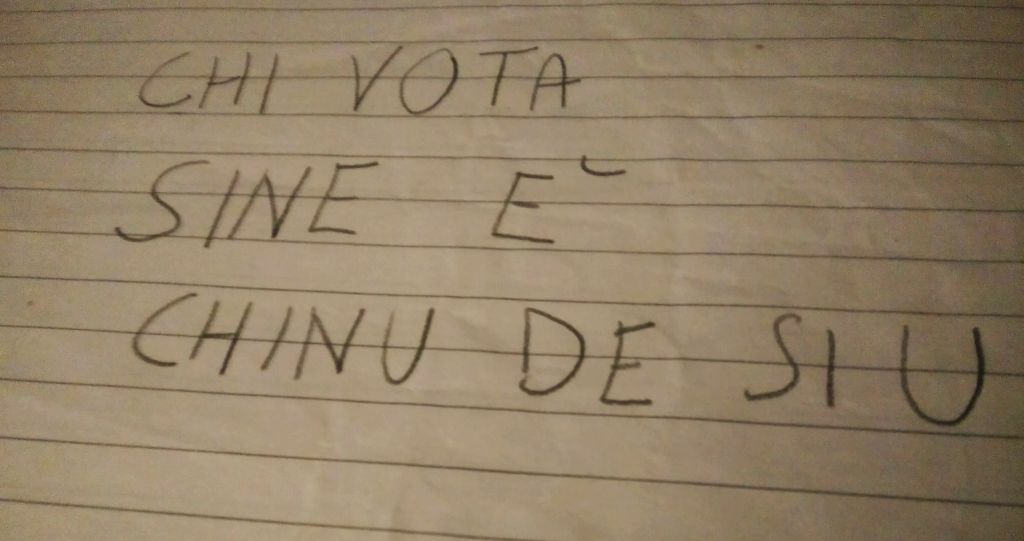 CHI VOTA
SINE È
CHINU DE SIU